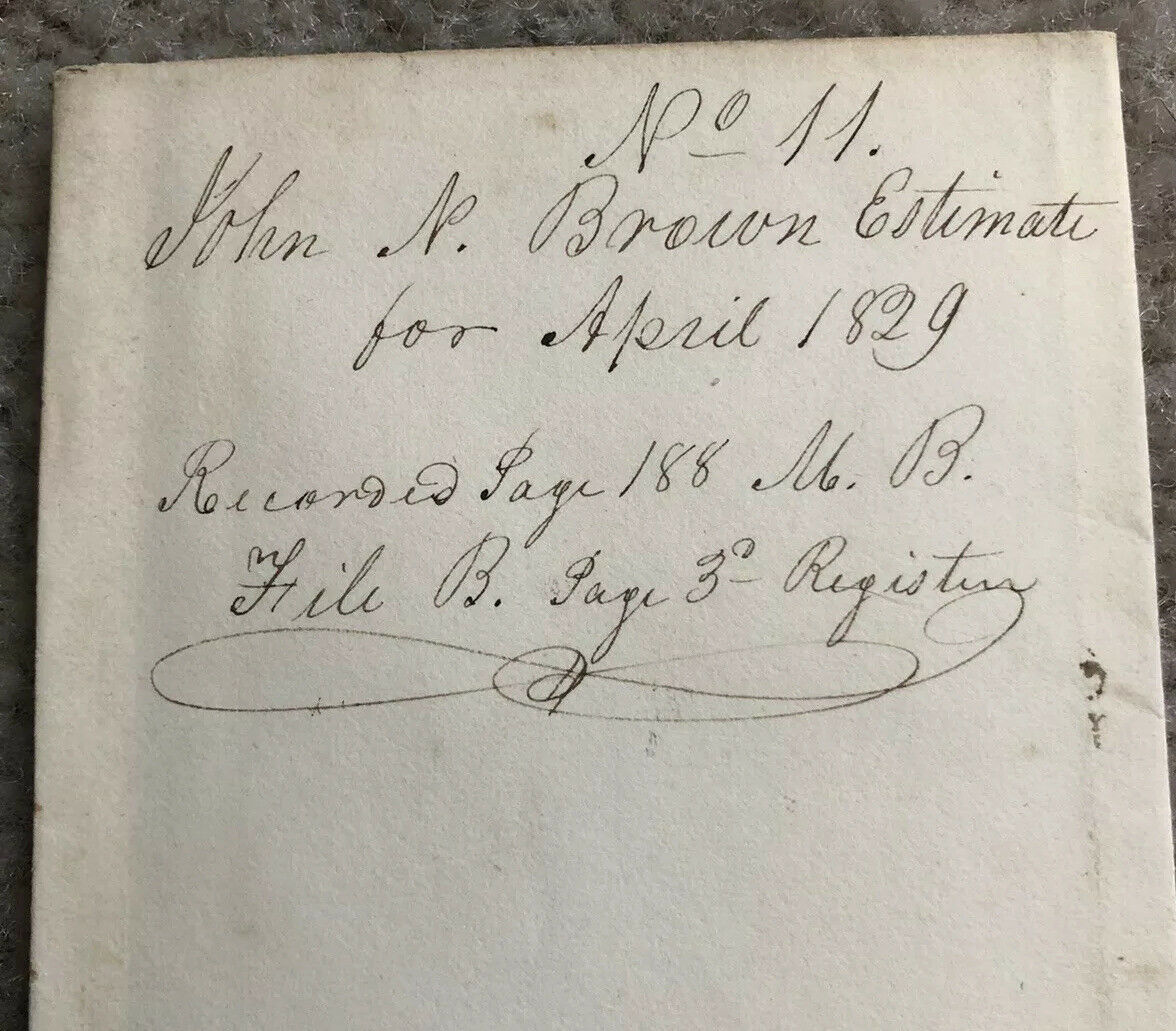 No 11.
John N. Brown Estimate
for April 1829
Recorded Page 188 M. B.
File B. Page 3d Register